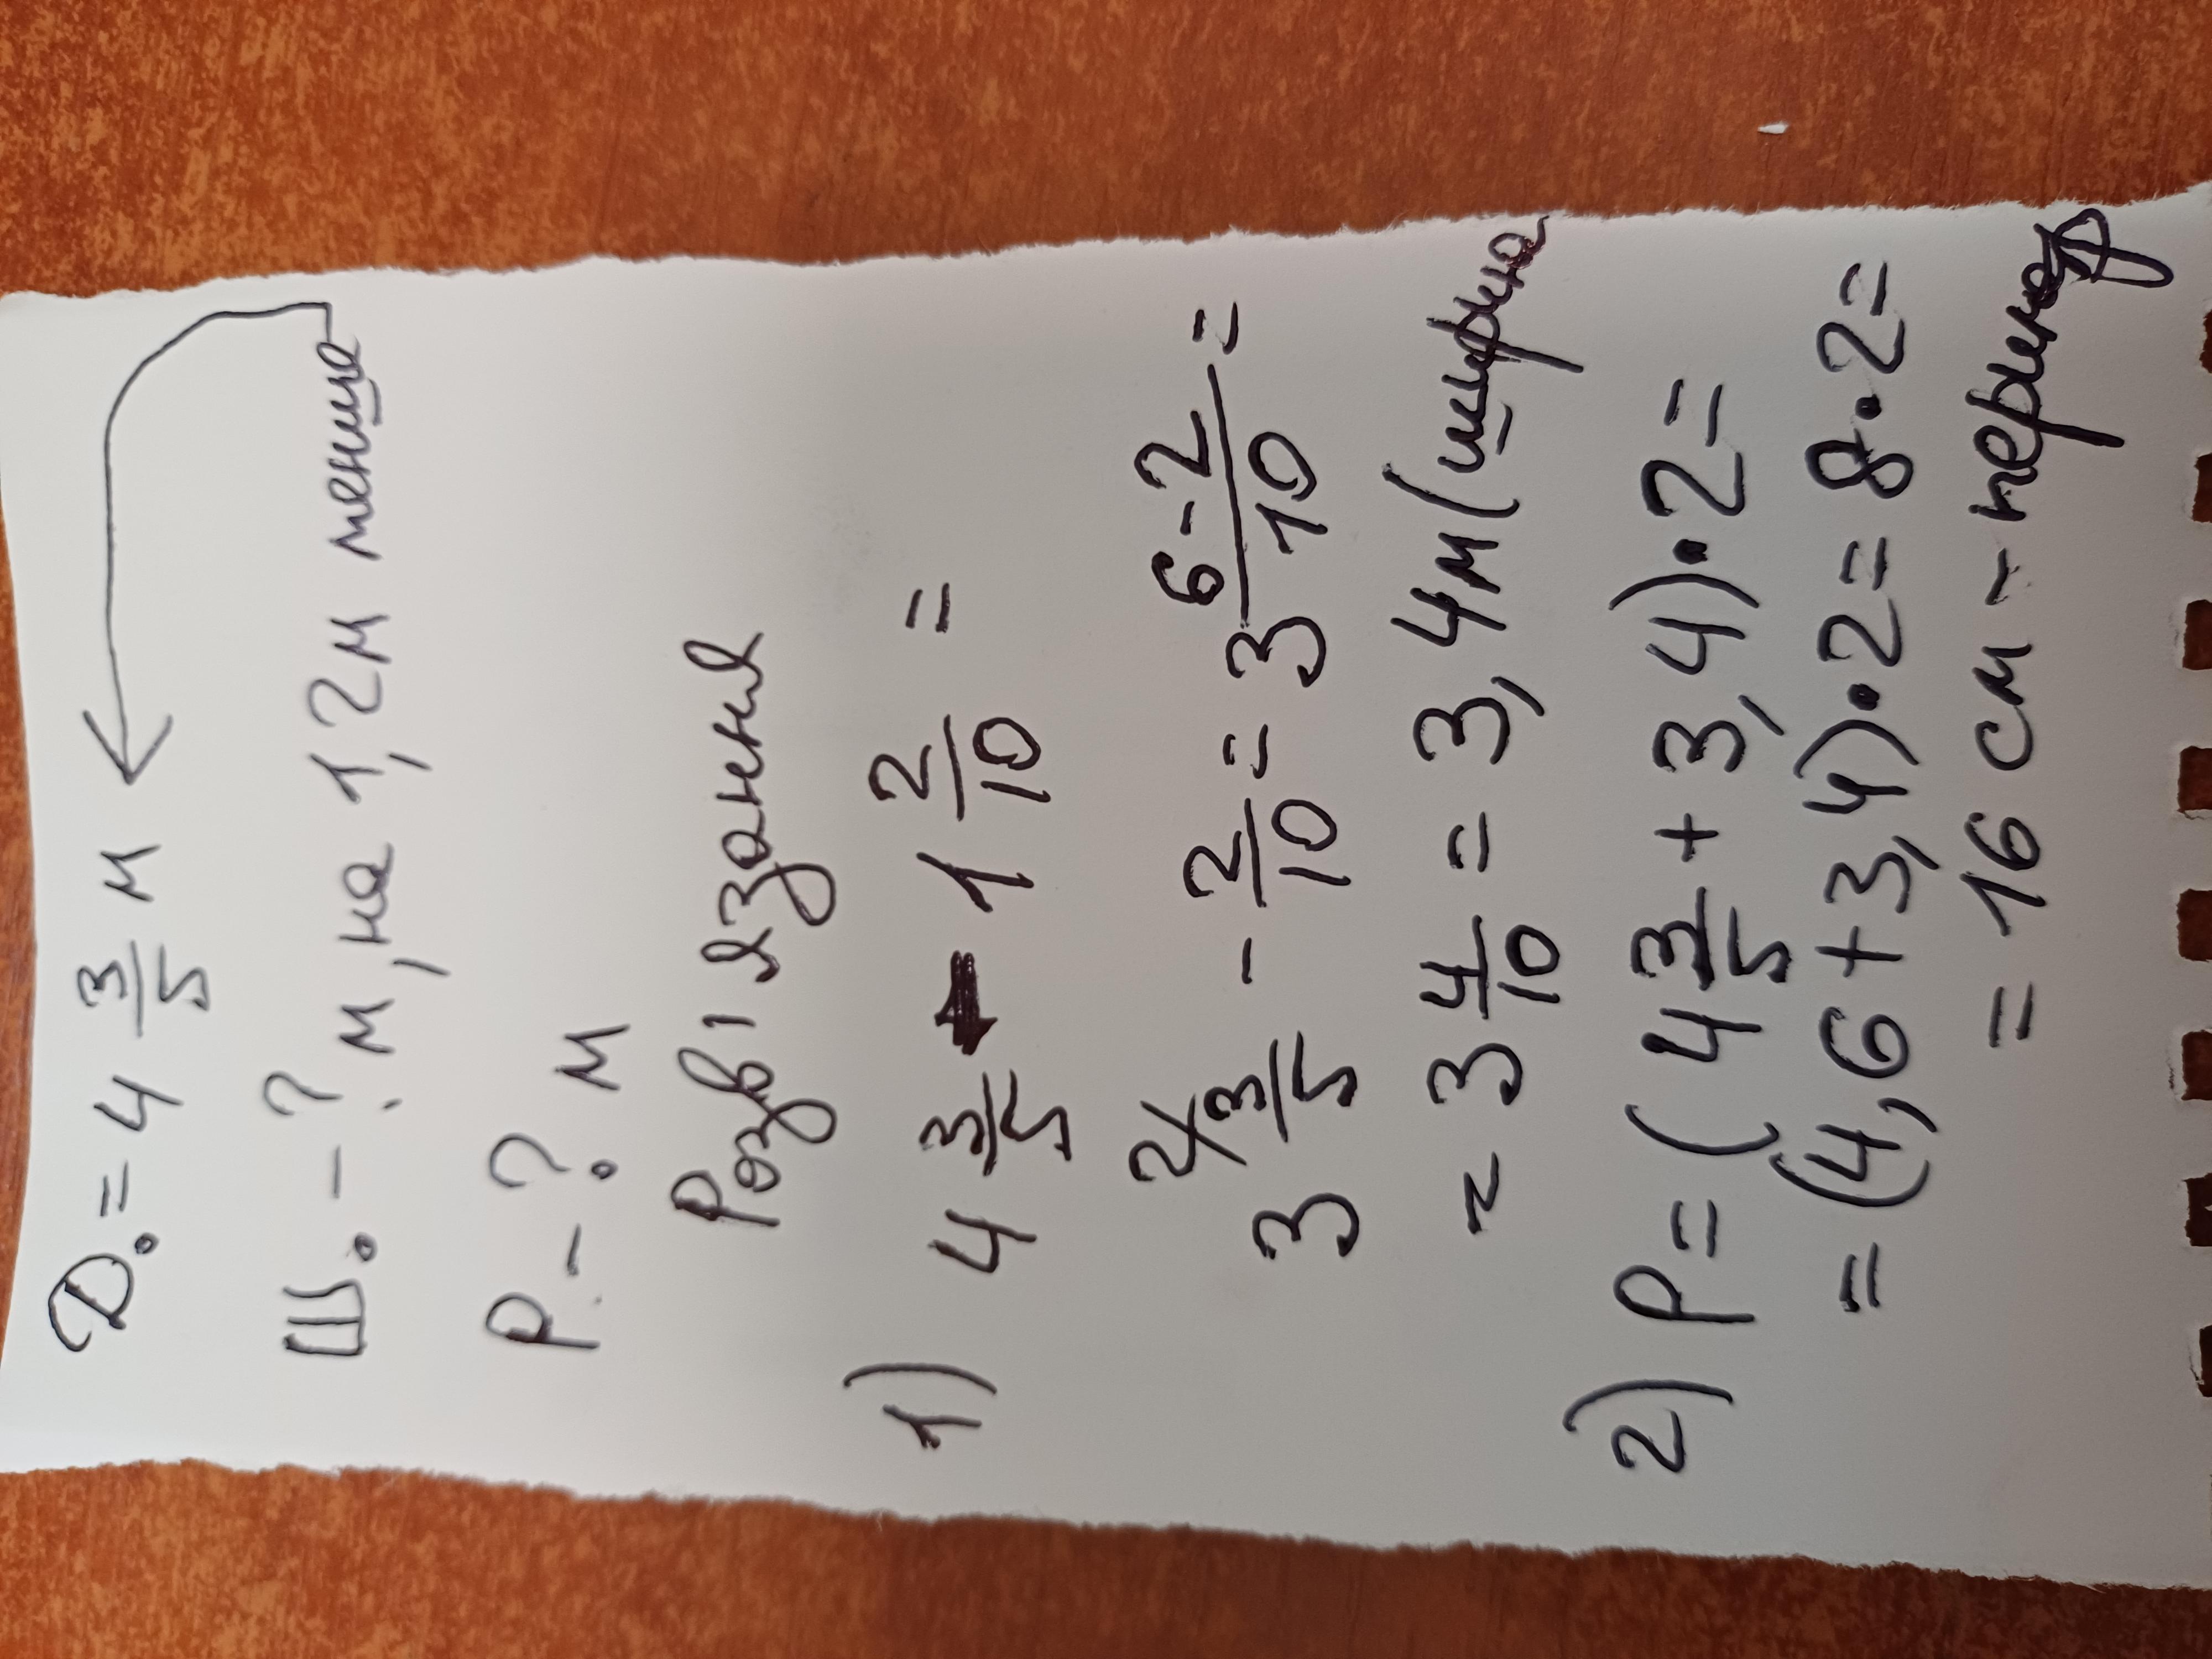 D. = 4 3/5 м
Ш. - ? м, на 1,2м менша
P - ? м
Розв'язання
1) 4 3/5 - 1 2/10 =
3 2/3/5 - 2/10 = 3 6-2/10 =
= 3 4/10 = 3,4м (ширина
2) P = (4 3/5 + 3,4)·2 =
= (4,6+3,4)·2 = 8·2 =
= 16 см - периметр